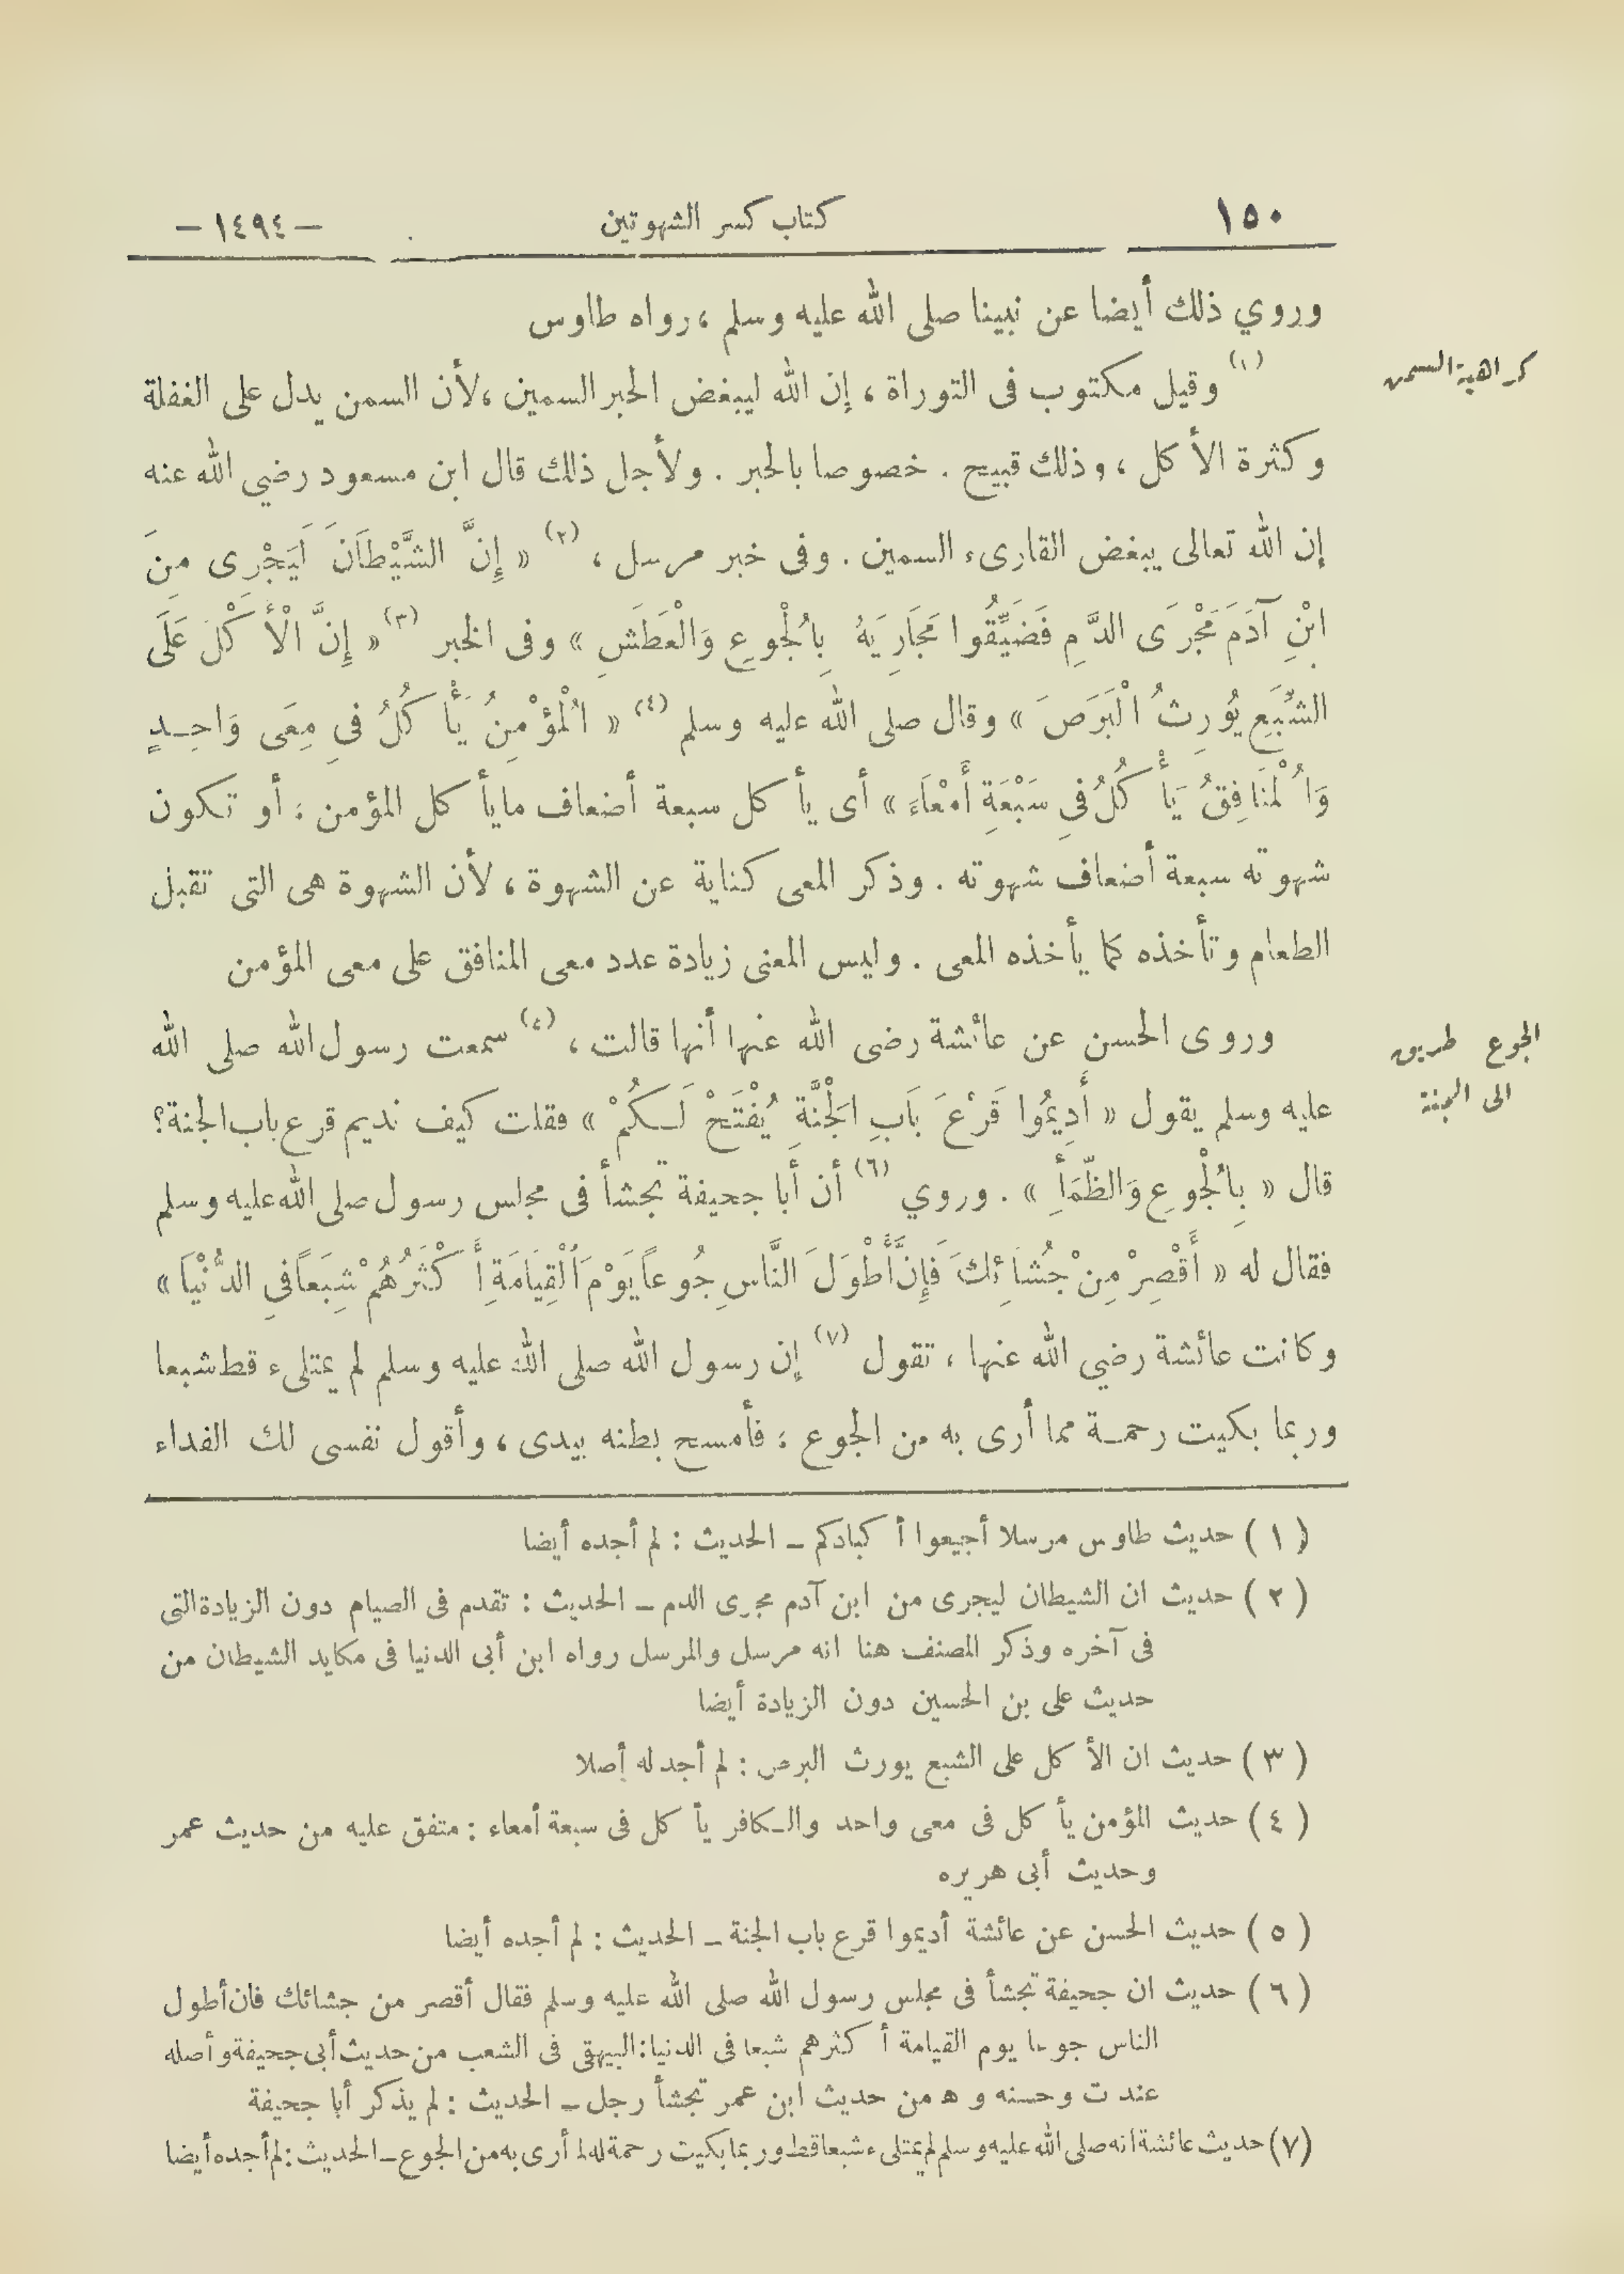 ١٥٠ كتاب كسر الشهوتين — ١٤٩٤ —
وروي ذلك أيضا عن نبينا صلى الله عليه وسلم ، رواه طاوس
كراهية السمن
(١) وقيل مكتوب فى التوراة ، إن الله ليبغض الحبر السمين ، لأن السمن يدل على الغفلة
وكثرة الأكل ، وذلك قبيح . خصوصا بالحبر . ولأجل ذلك قال ابن مسعود رضي الله عنه
إن الله تعالى يبغض القارىء السمين . وفى خبر مرسل ، (٢) « إِنَّ الشَّيْطَانَ لَيَجْرِى مِنَ
ابْنِ آدَمَ مَجْرَى الدَّمِ فَضَيِّقُوا مَجَارِيَهُ بِالْجُوعِ وَالْعَطَشِ » وفى الخبر (٣) « إِنَّ الْأَكْلَ عَلَى
الشِّبَعِ يُورِثُ الْبَرَصَ » وقال صلى الله عليه وسلم (٤) « الْمُؤْمِنُ يَأْكُلُ فِى مِعَى وَاحِدٍ
وَالْمُنَافِقُ يَأْكُلُ فِى سَبْعَةِ أَمْعَاءَ » أى يأكل سبعة أضعاف مايأكل المؤمن : أو تكون
شهوته سبعة أضعاف شهوته . وذكر المعى كناية عن الشهوة ، لأن الشهوة هى التى تقبل
الطعام وتأخذه كما يأخذه المعى . وليس المعنى زيادة عدد معى المنافق على معى المؤمن
الجوع طريق
الى الجنة
وروى الحسن عن عائشة رضى الله عنها أنها قالت ، (٥) سمعت رسول الله صلى الله
عليه وسلم يقول « أَدِيمُوا قَرْعَ بَابِ الْجَنَّةِ يُفْتَحْ لَكُمْ » فقلت كيف نديم قرع باب الجنة؟
قال « بِالْجُوعِ وَالظَّمَأِ » . وروي (٦) أن أبا جحيفة تجشأ فى مجلس رسول صلى الله عليه وسلم
فقال له « أَقْصِرْ مِنْ جُشَائِكَ فَإِنَّ أَطْوَلَ النَّاسِ جُوعاً يَوْمَ الْقِيَامَةِ أَكْثَرُهُمْ شِبَعاً فِى الدُّنْيَا »
وكانت عائشة رضي الله عنها ، تقول (٧) إن رسول الله صلى الله عليه وسلم لم يمتلىء قط شبعا
وربما بكيت رحمة مما أرى به من الجوع : فأمسح بطنه بيدى ، وأقول نفسى لك الفداء
(١) حديث طاوس مرسلا أجيعوا أكبادكم ــ الحديث : لم أجده أيضا
(٢) حديث ان الشيطان ليجرى من ابن آدم مجرى الدم ــ الحديث : تقدم فى الصيام دون الزيادة التى
فى آخره وذكر المصنف هنا انه مرسل والمرسل رواه ابن أبى الدنيا فى مكايد الشيطان من
حديث على بن الحسين دون الزيادة أيضا
(٣) حديث ان الأكل على الشبع يورث البرص : لم أجد له أصلا
(٤) حديث المؤمن يأكل فى معى واحد والكافر يأكل فى سبعة أمعاء : متفق عليه من حديث عمر
وحديث أبى هريره
(٥) حديث الحسن عن عائشة أديموا قرع باب الجنة ــ الحديث : لم أجده أيضا
(٦) حديث ان جحيفة تجشأ فى مجلس رسول الله صلى الله عليه وسلم فقال أقصر من جشائك فان أطول
الناس جوعا يوم القيامة أكثرهم شبعا فى الدنيا : البيهقى فى الشعب من حديث أبى جحيفة وأصله
عند ت وحسنه و ه من حديث ابن عمر تجشأ رجل ــ الحديث : لم يذكر أبا جحيفة
(٧) حديث عائشة انه صلى الله عليه وسلم لم يمتلىء شبعا قط وربما بكيت رحمة له لما أرى به من الجوع ــ الحديث : لم أجده أيضا